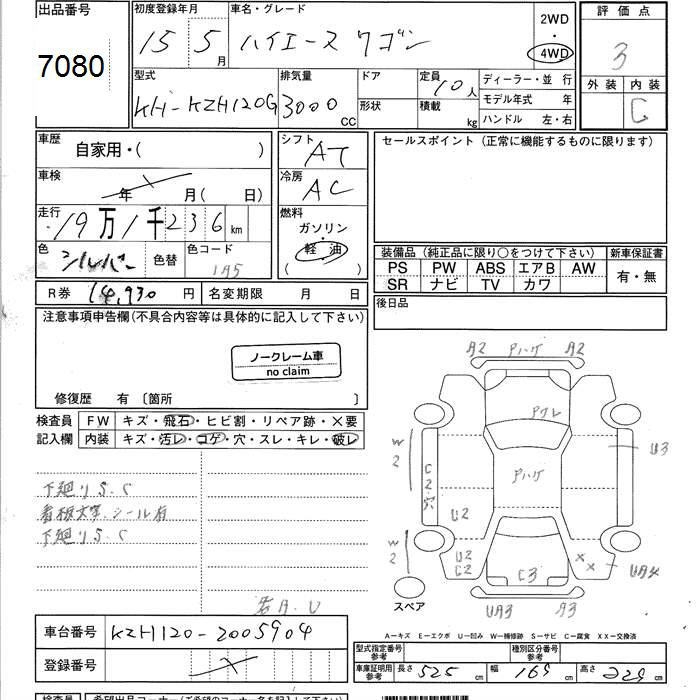 出品番号
7080
初度登録年月
15 5 月
車名・グレード
ハイエース ワゴン
2WD
・
4WD
評価点
3
外装 内装
C
型式
KH-KZH120G
排気量
3000 CC
ドア
形状
定員
10人
積載
kg
ディーラー・並 行
モデル年式 年
ハンドル 左・右
車歴
自家用・( )
車検
年 月( 日)
走行
19万1千236 km
色
シルバー
色替
色コード
1A5
シフト
AT
冷房
AC
燃料
ガソリン
軽油
( )
セールスポイント(正常に機能するものに限ります)
装備品(純正品に限り○をつけて下さい)
新車保証書
PS PW ABS エアB AW
SR ナビ TV カワ
有・無
R券 14,930 円
名変期限 月 日
後日品
注意事項申告欄(不具合内容等は具体的に記入して下さい)
ノークレーム車
no claim
修復歴 有 〔箇所 〕
検査員
記入欄
FW キズ・飛石・ヒビ割・リペア跡・×要
内装 キズ・汚レ・コゲ・穴・スレ・キレ・破レ
下廻りS.C
看板文字.シール有
下廻りS.C
A2 Pハゲ A2
Pワレ
W2
C2穴
Pハゲ
U3
U2
W2
U2
C2
C3
××
UA4
スペア
UA3 A3
車台番号 KZH120-2005904
登録番号
A－キズ E－エクボ U－凹み W－補修跡 S－サビ C－腐食 XX－交換済
型式指定番号
参考
種別区分番号
参考
車庫証明用
参考
長さ 525 cm 幅 169 cm 高さ 229 cm